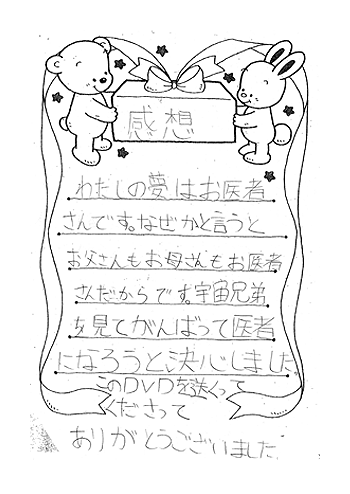 感想
わたしの夢はお医者
さんです。なぜかと言うと
お父さんもお母さんもお医者
さんだからです。宇宙兄弟
を見てがんばって医者
になろうと決心しました。
このDVDを送くって
くださって
ありがとうございました。